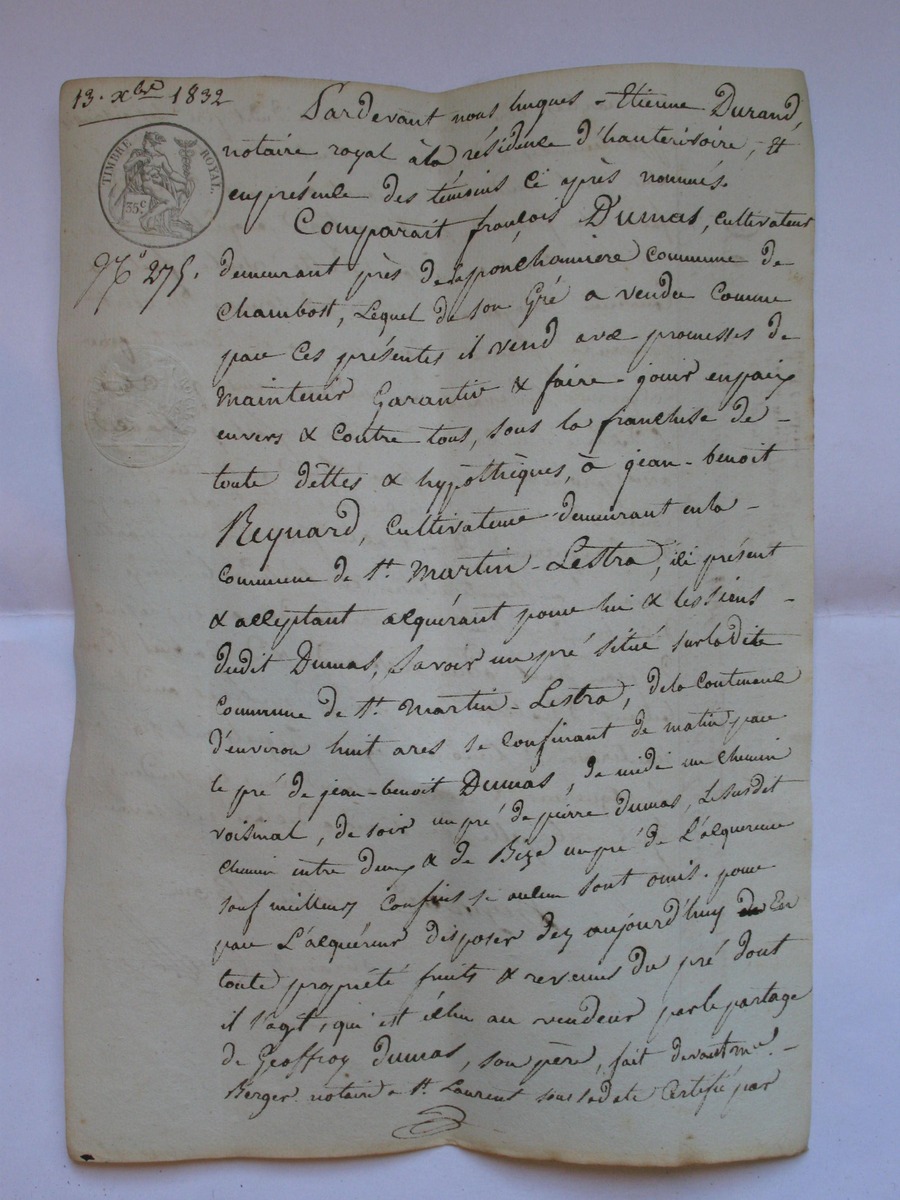 13. xbre 1832
Pardevant nous hugues - Etienne Durand,
notaire royal à la résidence d'hauterivoire, Et
en présence des témoins Ci après nommés.
TIMBRE ROYAL.
35c
Comparait françois Dumas, cultivateur
No 275.
demeurant près de la ponchonniere commune de
Chambost, Lequel de son Gré a vendu comme
par Ces présentes il vend avec promesses de
Maintenir Garantir & faire jouir en paix
envers & Contre tous, sous la franchise de -
toute dêttes & hypôthèques, à jean-benoit
Reynard, Cultivateur demeurant en la -
Commune de St. Martin-Lestra, ici présent
& acceptant acquérant pour lui & les siens -
dudit Dumas, Savoir un pré situé sur la dite
Commune de St. Martin-Lestra, de la Contenance
d'environ huit ares se Confinant de matin par
le pré de jean-benoit Dumas, de midi un Chemin
voisinal, de soir un pré de pierre Dumas, Le susdit
Chemin entre deux & de Bize un pré de L'acquereur
sauf meilleurs Confins se aucun sont omis. pour
par L'acquéreur disposer dez aujourd'huy de En
toute propriété fruits & revenus du pré dont
il s'agit, qui est échu au vendeur par le partage
de Geoffroy Dumas, son père, fait devant me. -
Berger notaire a St. Laurent sous sa date Certifié par